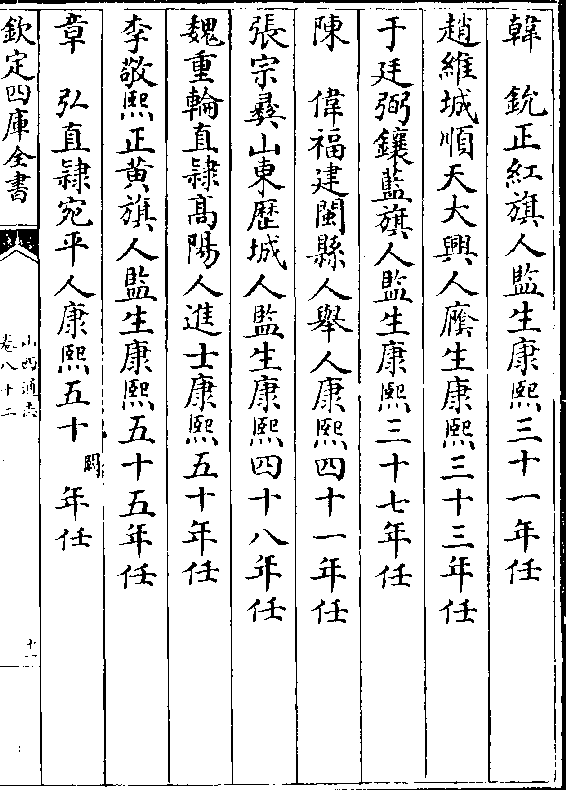 韓　銳正紅旗人監生康熙三十一年任
趙維城順天大興人廕生康熙三十三年任
于廷弼鑲藍旗人監生康熙三十七年任
陳　偉福建閩縣人舉人康熙四十一年任
張宗彞山東歷城人監生康熙四十八年任
魏重輪直隸高陽人進士康熙五十年任
李敬熙正黃旗人監生康熙五十五年任
章　弘直隸宛平人康熙五十闕年任
欽定四庫全書
山西通志
卷八十二